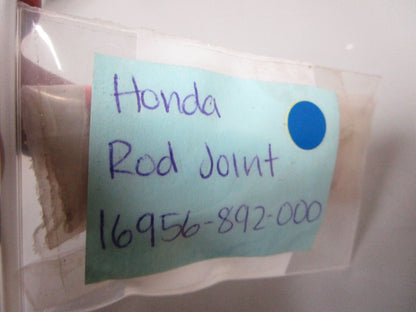 Honda
Rod Joint
16956-892-000